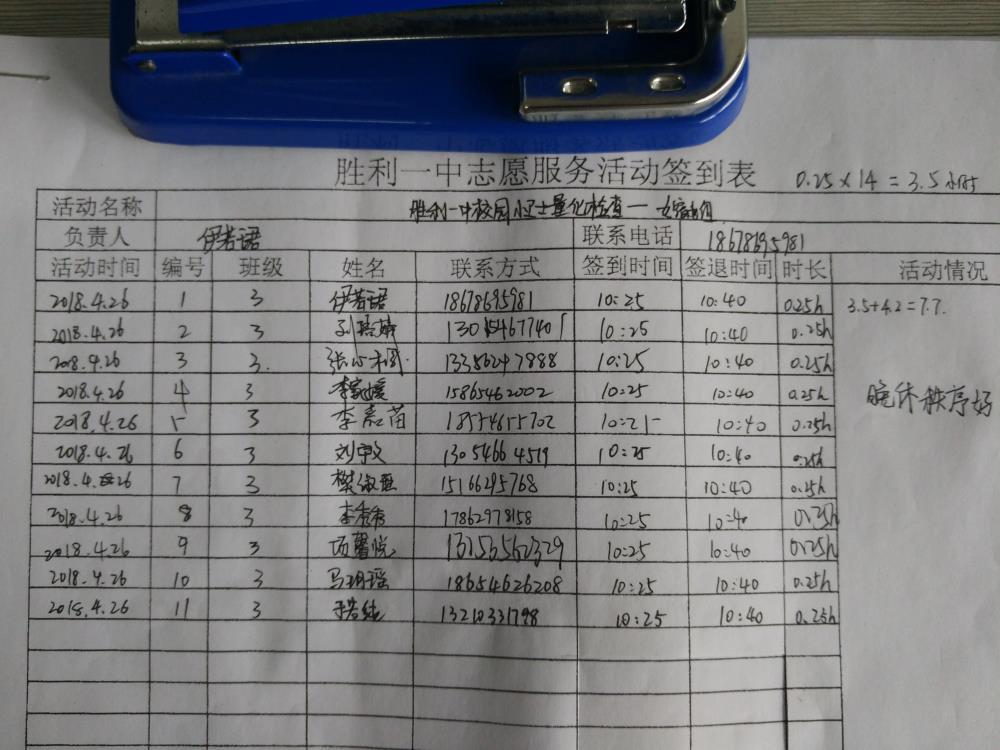 胜利一中志愿服务活动签到表 0.25×14=3.5小时
活动名称 胜利一中校园小卫士量化检查—女宿舍
负责人 伊若诺 联系电话 18678695981
活动时间 编号 班级 姓名 联系方式 签到时间 签退时间 时长 活动情况
2018.4.26 1 3 伊若诺 18678695981 10:25 10:40 0.25h 3.5+4.2=7.7.
2018.4.26 2 3 10:25 10:40 0.25h
2018.4.26 3 3. 13356247888 10:25 10:40 0.25h
2018.4.26 4 3 15865462002 10:25 10:40 0.25h 晚休秩序好
2018.4.26 5 3 18554655702 10:25 10:40 0.25h
2018.4.26 6 3 13054664519 10:25 10:40 0.25h
2018.4.26 7 3 15166295768 10:25 10:40 0.25h
2018.4.26 8 3 17862978158 10:25 10:40 0.25h
2018.4.26 9 3 项馨悦 10:25 10:40 0.25h
2018.4.26 10 3 马玥瑶 18654626208 10:25 10:40 0.25h
2018.4.26 11 3 13210331798 10:25 10:40 0.25h